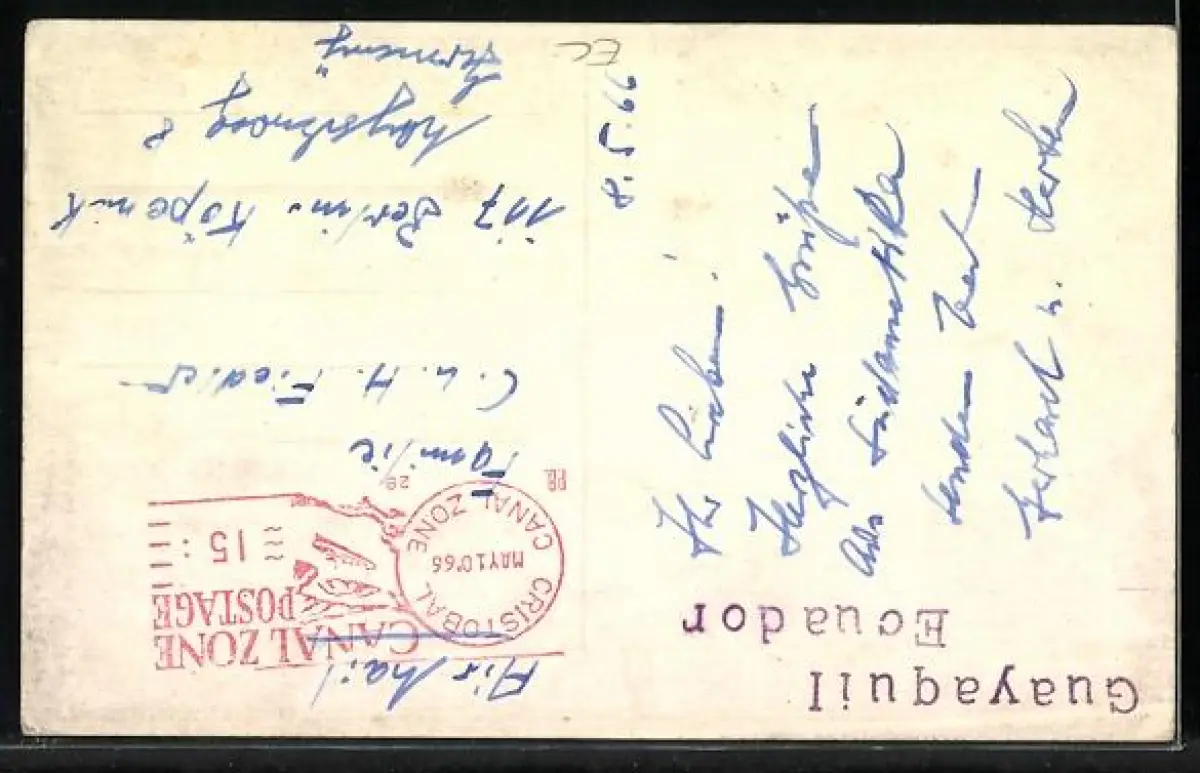 Guayaquil
Ecuador
8.5.66
Ihr Lieben!
Herzliche Grüße
aus Südamerika
senden Euch
Gerhard u. Herta
Air Mail
CANAL ZONE
POSTAGE
15
CRISTOBAL
MAY 10 '66
CANAL ZONE
PB
Familie
C. u. H. Fiedler
117 Berlin-Köpenik
8
Germany
EC